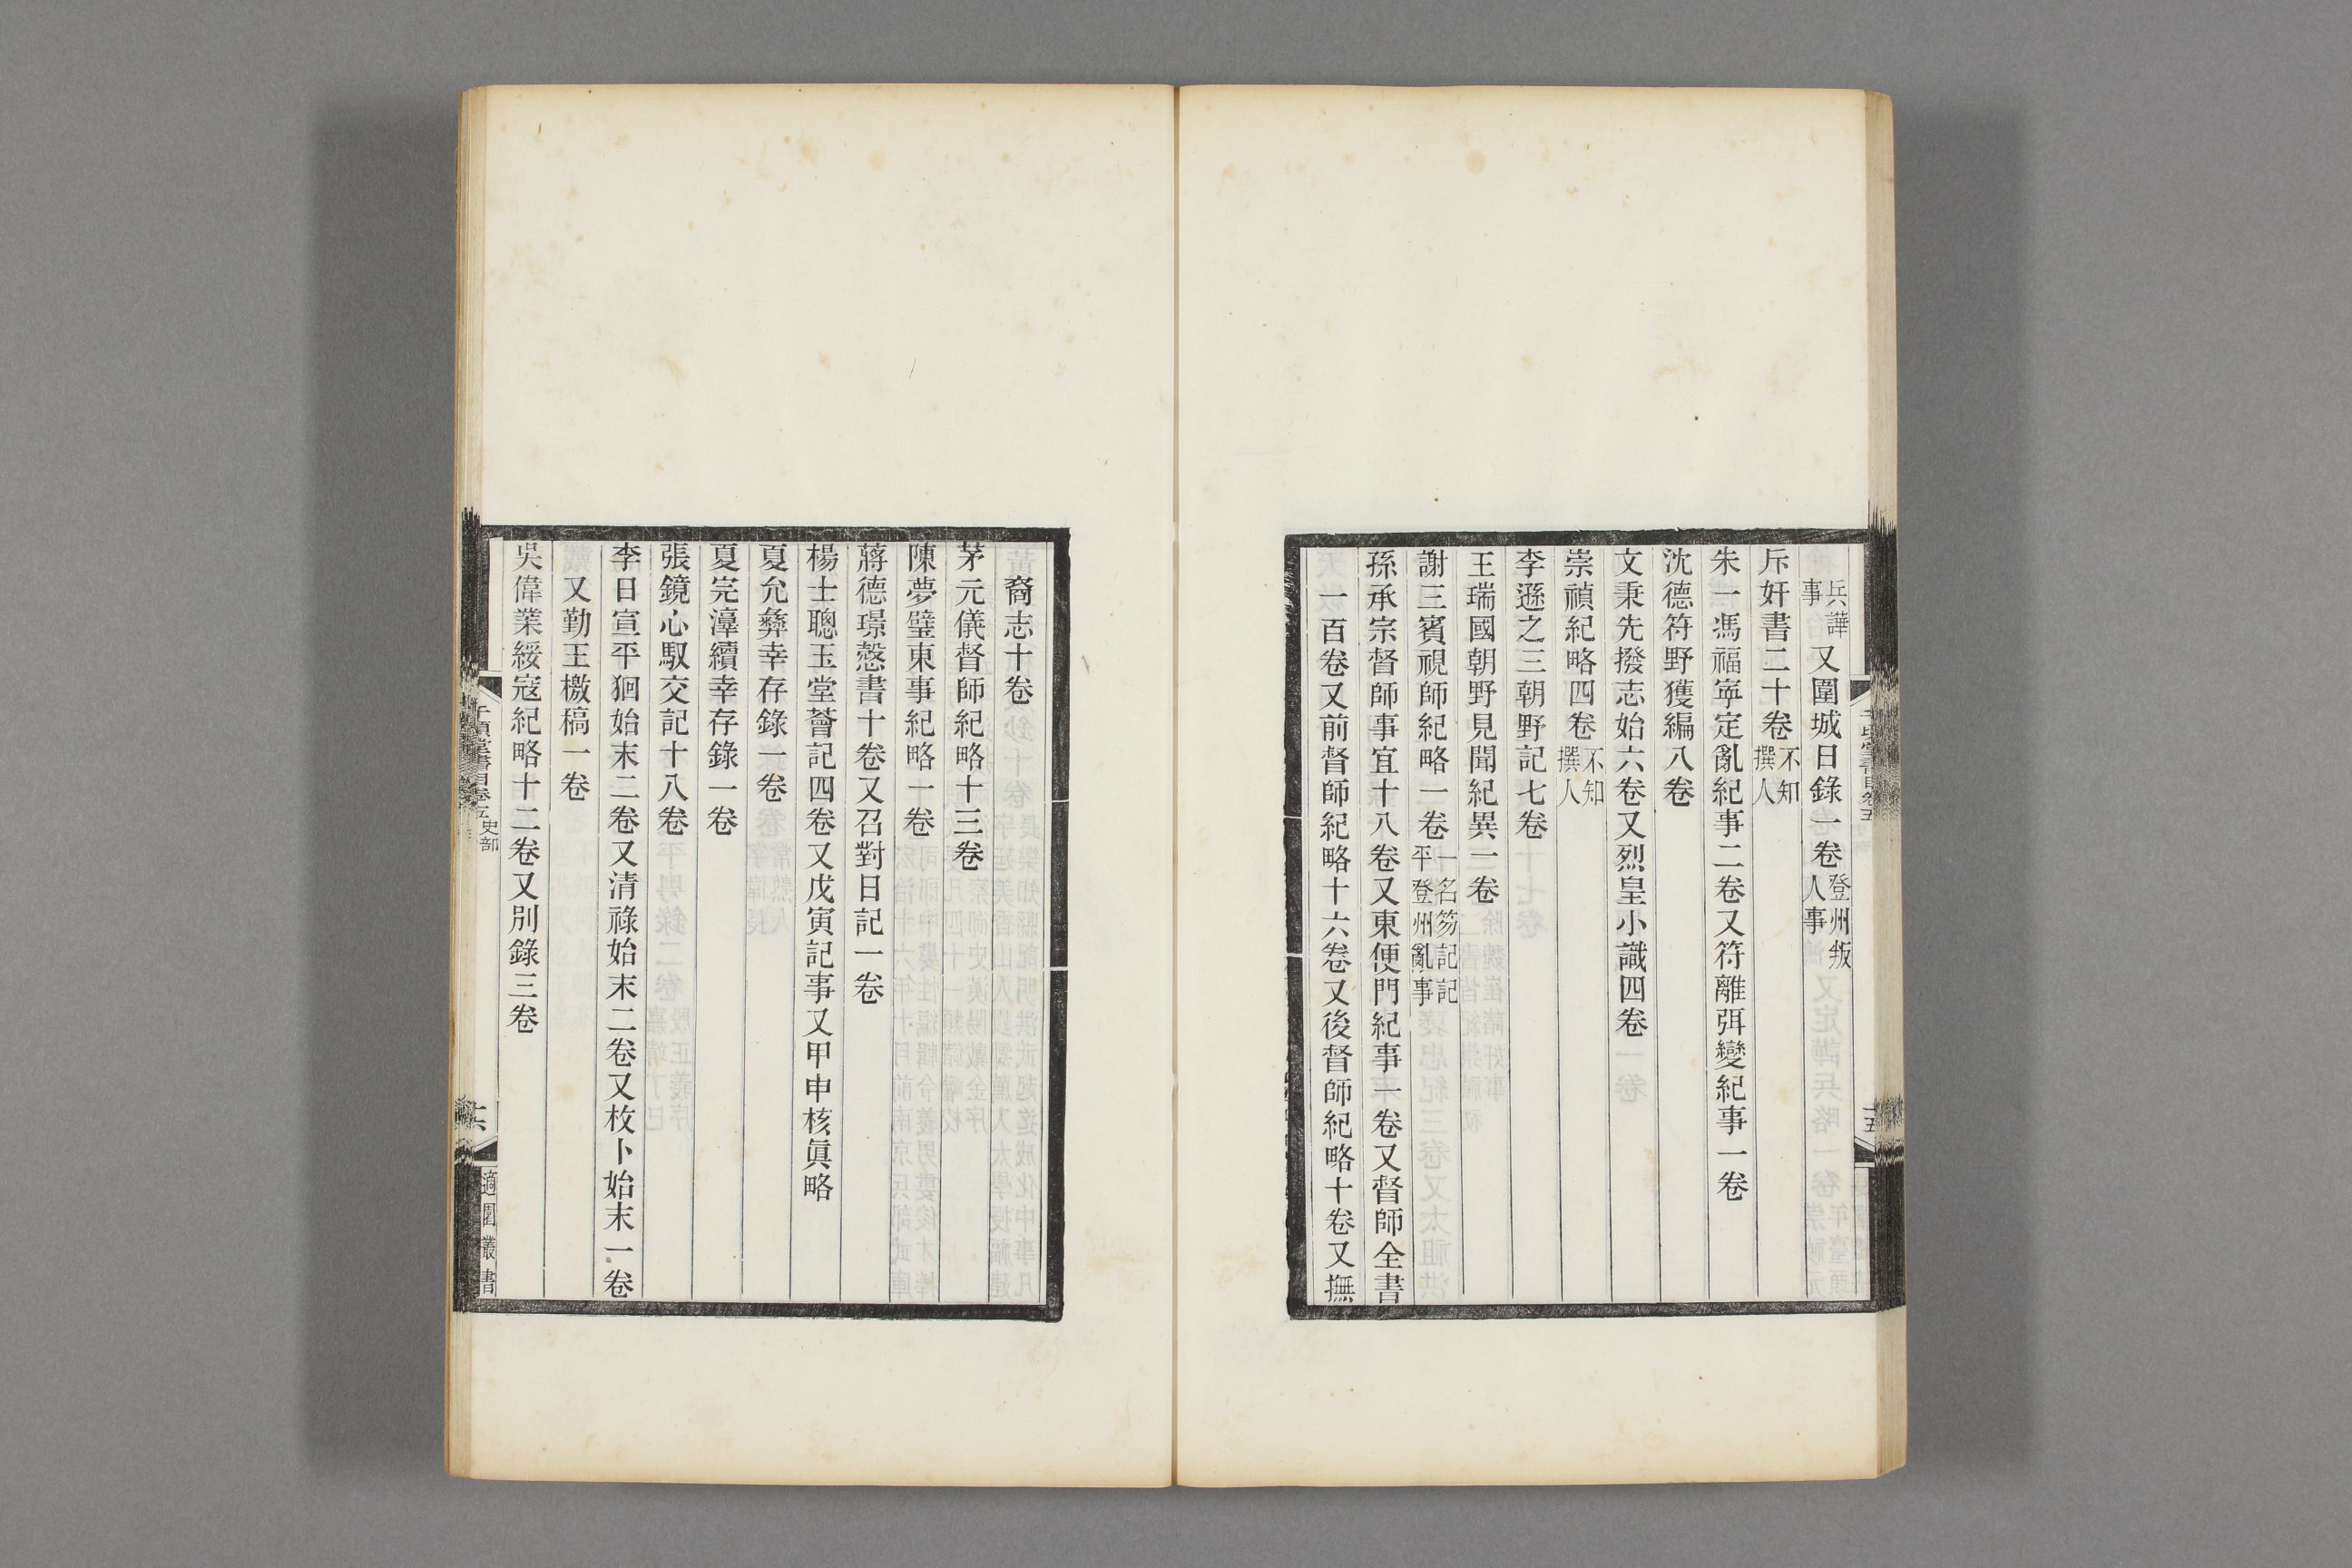 兵譁事又圍城日錄一卷登州叛人事
斥奸書二十卷不知撰人
朱一馮福寧定亂紀事二卷又符離弭變紀事一卷
沈德符野獲編八卷
文秉先撥志始六卷又烈皇小識四卷
崇禎紀略四卷不知撰人
李遜之三朝野記七卷
王瑞國朝野見聞紀異一卷
謝三賓視師紀略一卷一名笏記記平登州亂事
孫承宗督師事宜十八卷又東便門紀事一卷又督師全書
一百卷又前督師紀略十六卷又後督師紀略十卷又撫
裔志十卷
茅元儀督師紀略十三卷
陳夢璧東事紀略一卷
蔣德璟愨書十卷又召對日記一卷
楊士聰玉堂薈記四卷又戊寅記事又甲申核眞略
夏允彝幸存錄一卷
夏完湻續幸存錄一卷
張鏡心馭交記十八卷
李日宣平狪始末二卷又清祿始末二卷又枚卜始末一卷
又勤王檄稿一卷
吳偉業綏寇紀略十二卷又別錄三卷
千頃堂書目卷五 史部
十六
適園叢書